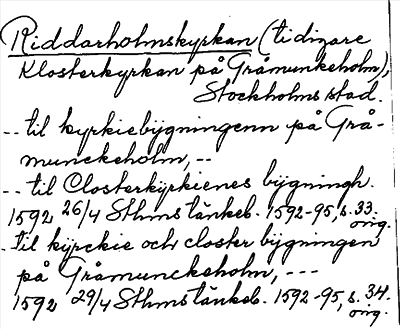 Riddarholmskyrkan (tidigare
Klosterkyrkan på Gråmunkeholm),
Stockholms stad.
-- til kyrkiebygningenn på Grå-
munckeholm, --
-- til Closterkyrkienes bygningh.
1592 26/4 Sthms tänkeb. 1592-95, s. 33.
orig.
- til kyrckie och closter bygningen
på Gråmunckeholm, ---
1592 29/4 Sthms tänkeb. 1592-95, s. 34.
orig.